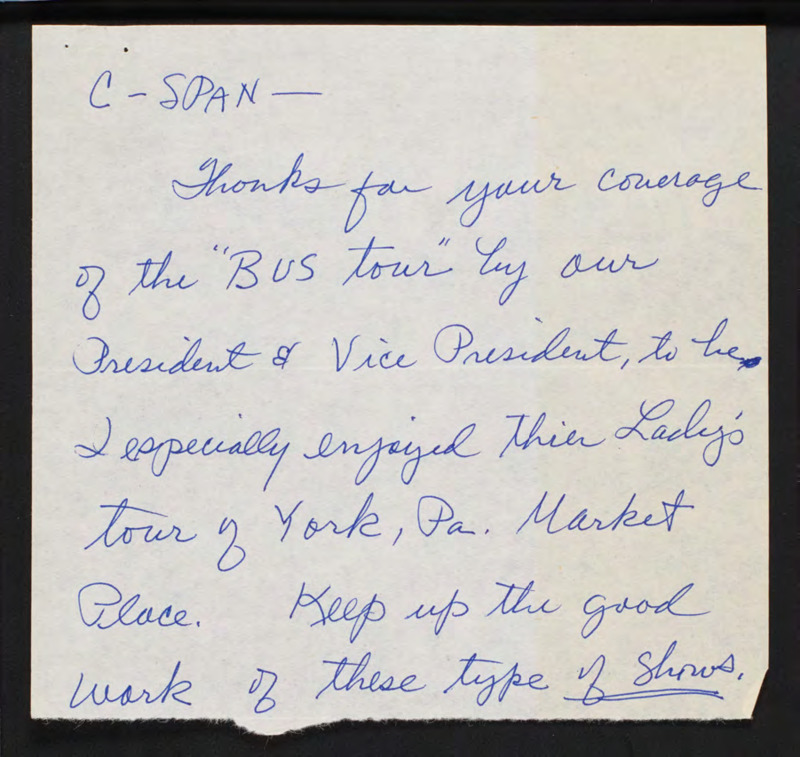 C-SPAN —
Thanks for your coverage
of the "BUS tour" by our
President & Vice President, to be.
I especially enjoyed thier Lady's
tour of York, Pa. Market
Place. Keep up the good
work of these type of Shows.